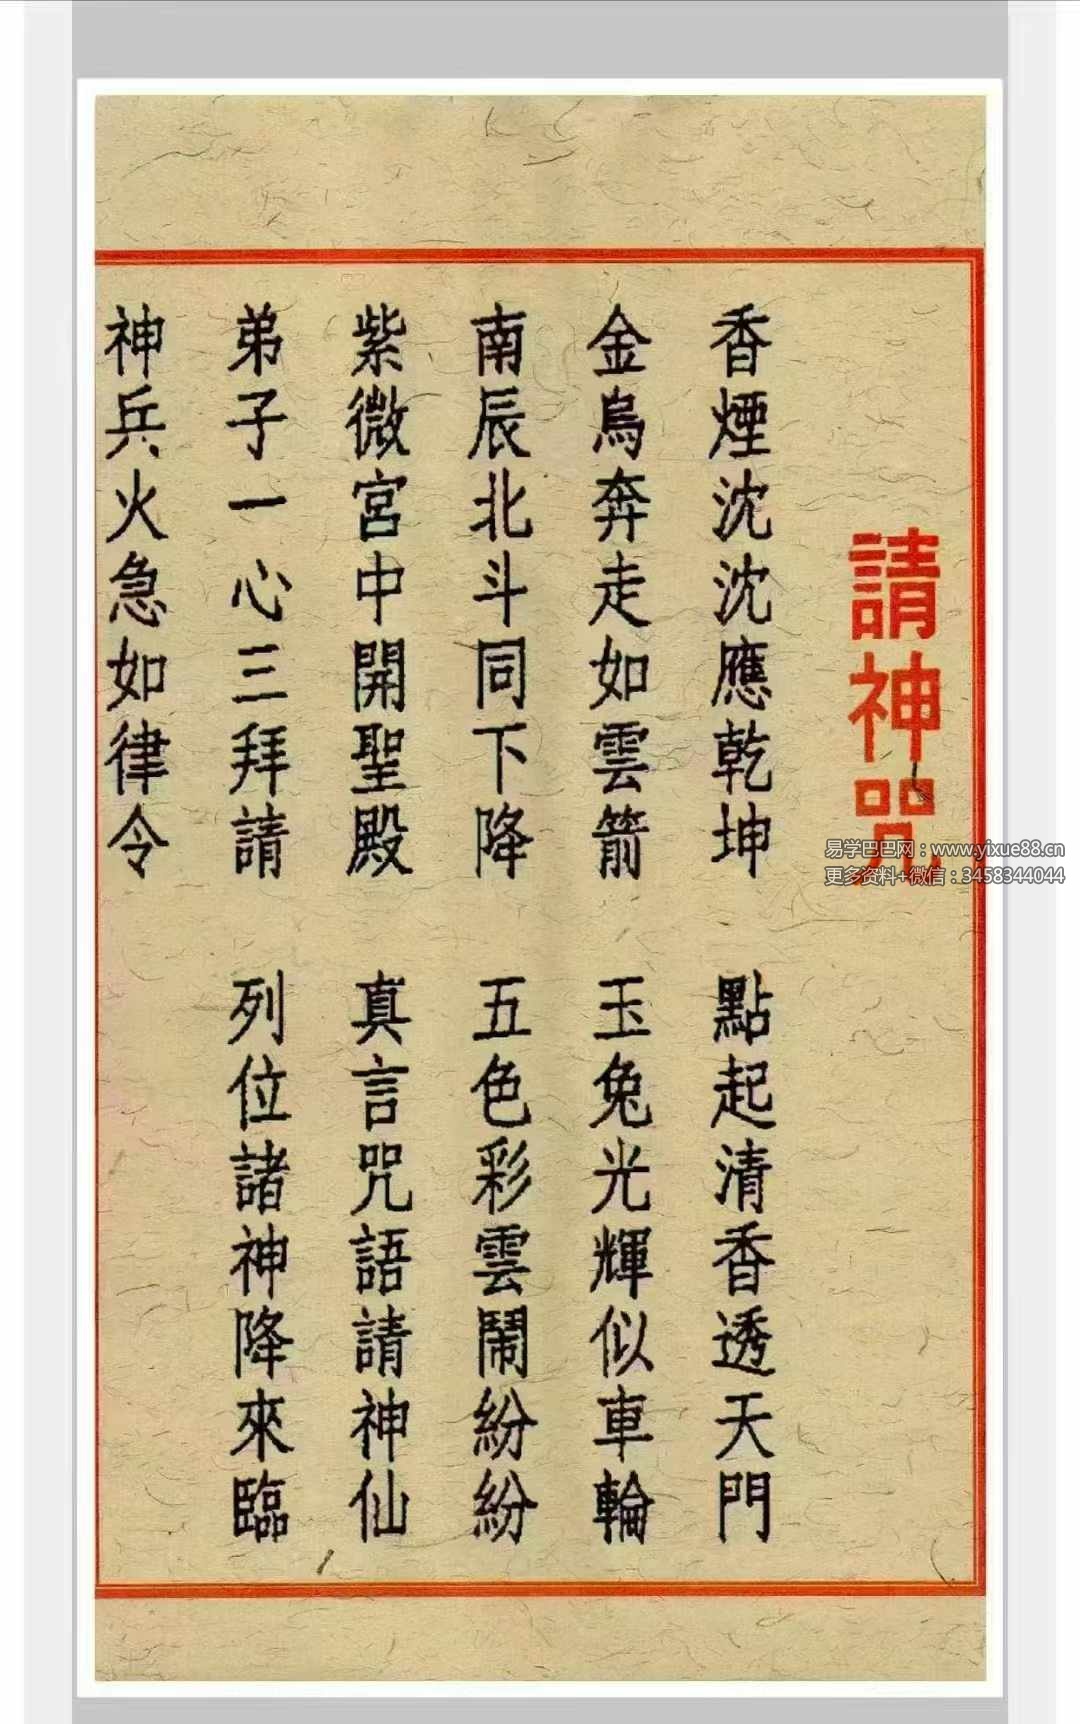 請神咒
香煙沈沈應乾坤 點起清香透天門
金烏奔走如雲箭 玉兔光輝似車輪
南辰北斗同下降 五色彩雲鬧紛紛
紫微宮中開聖殿 真言咒語請神仙
弟子一心三拜請 列位諸神降來臨
神兵火急如律令
易学巴巴网：www.yixue88.cn
更多资料+微信：3458344044